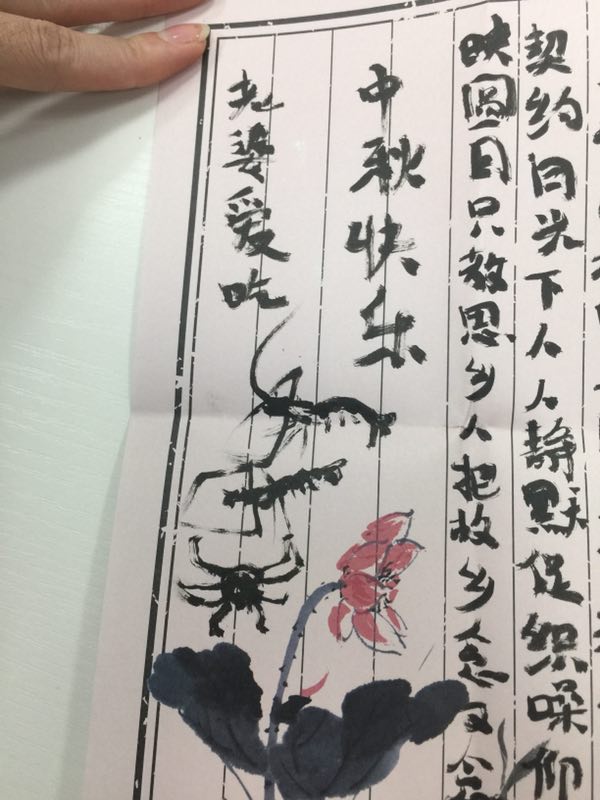 契约月光下人人静默促织嗓仰
映圆月只教思乡人把故乡念又念
中秋快乐
老婆爱吃